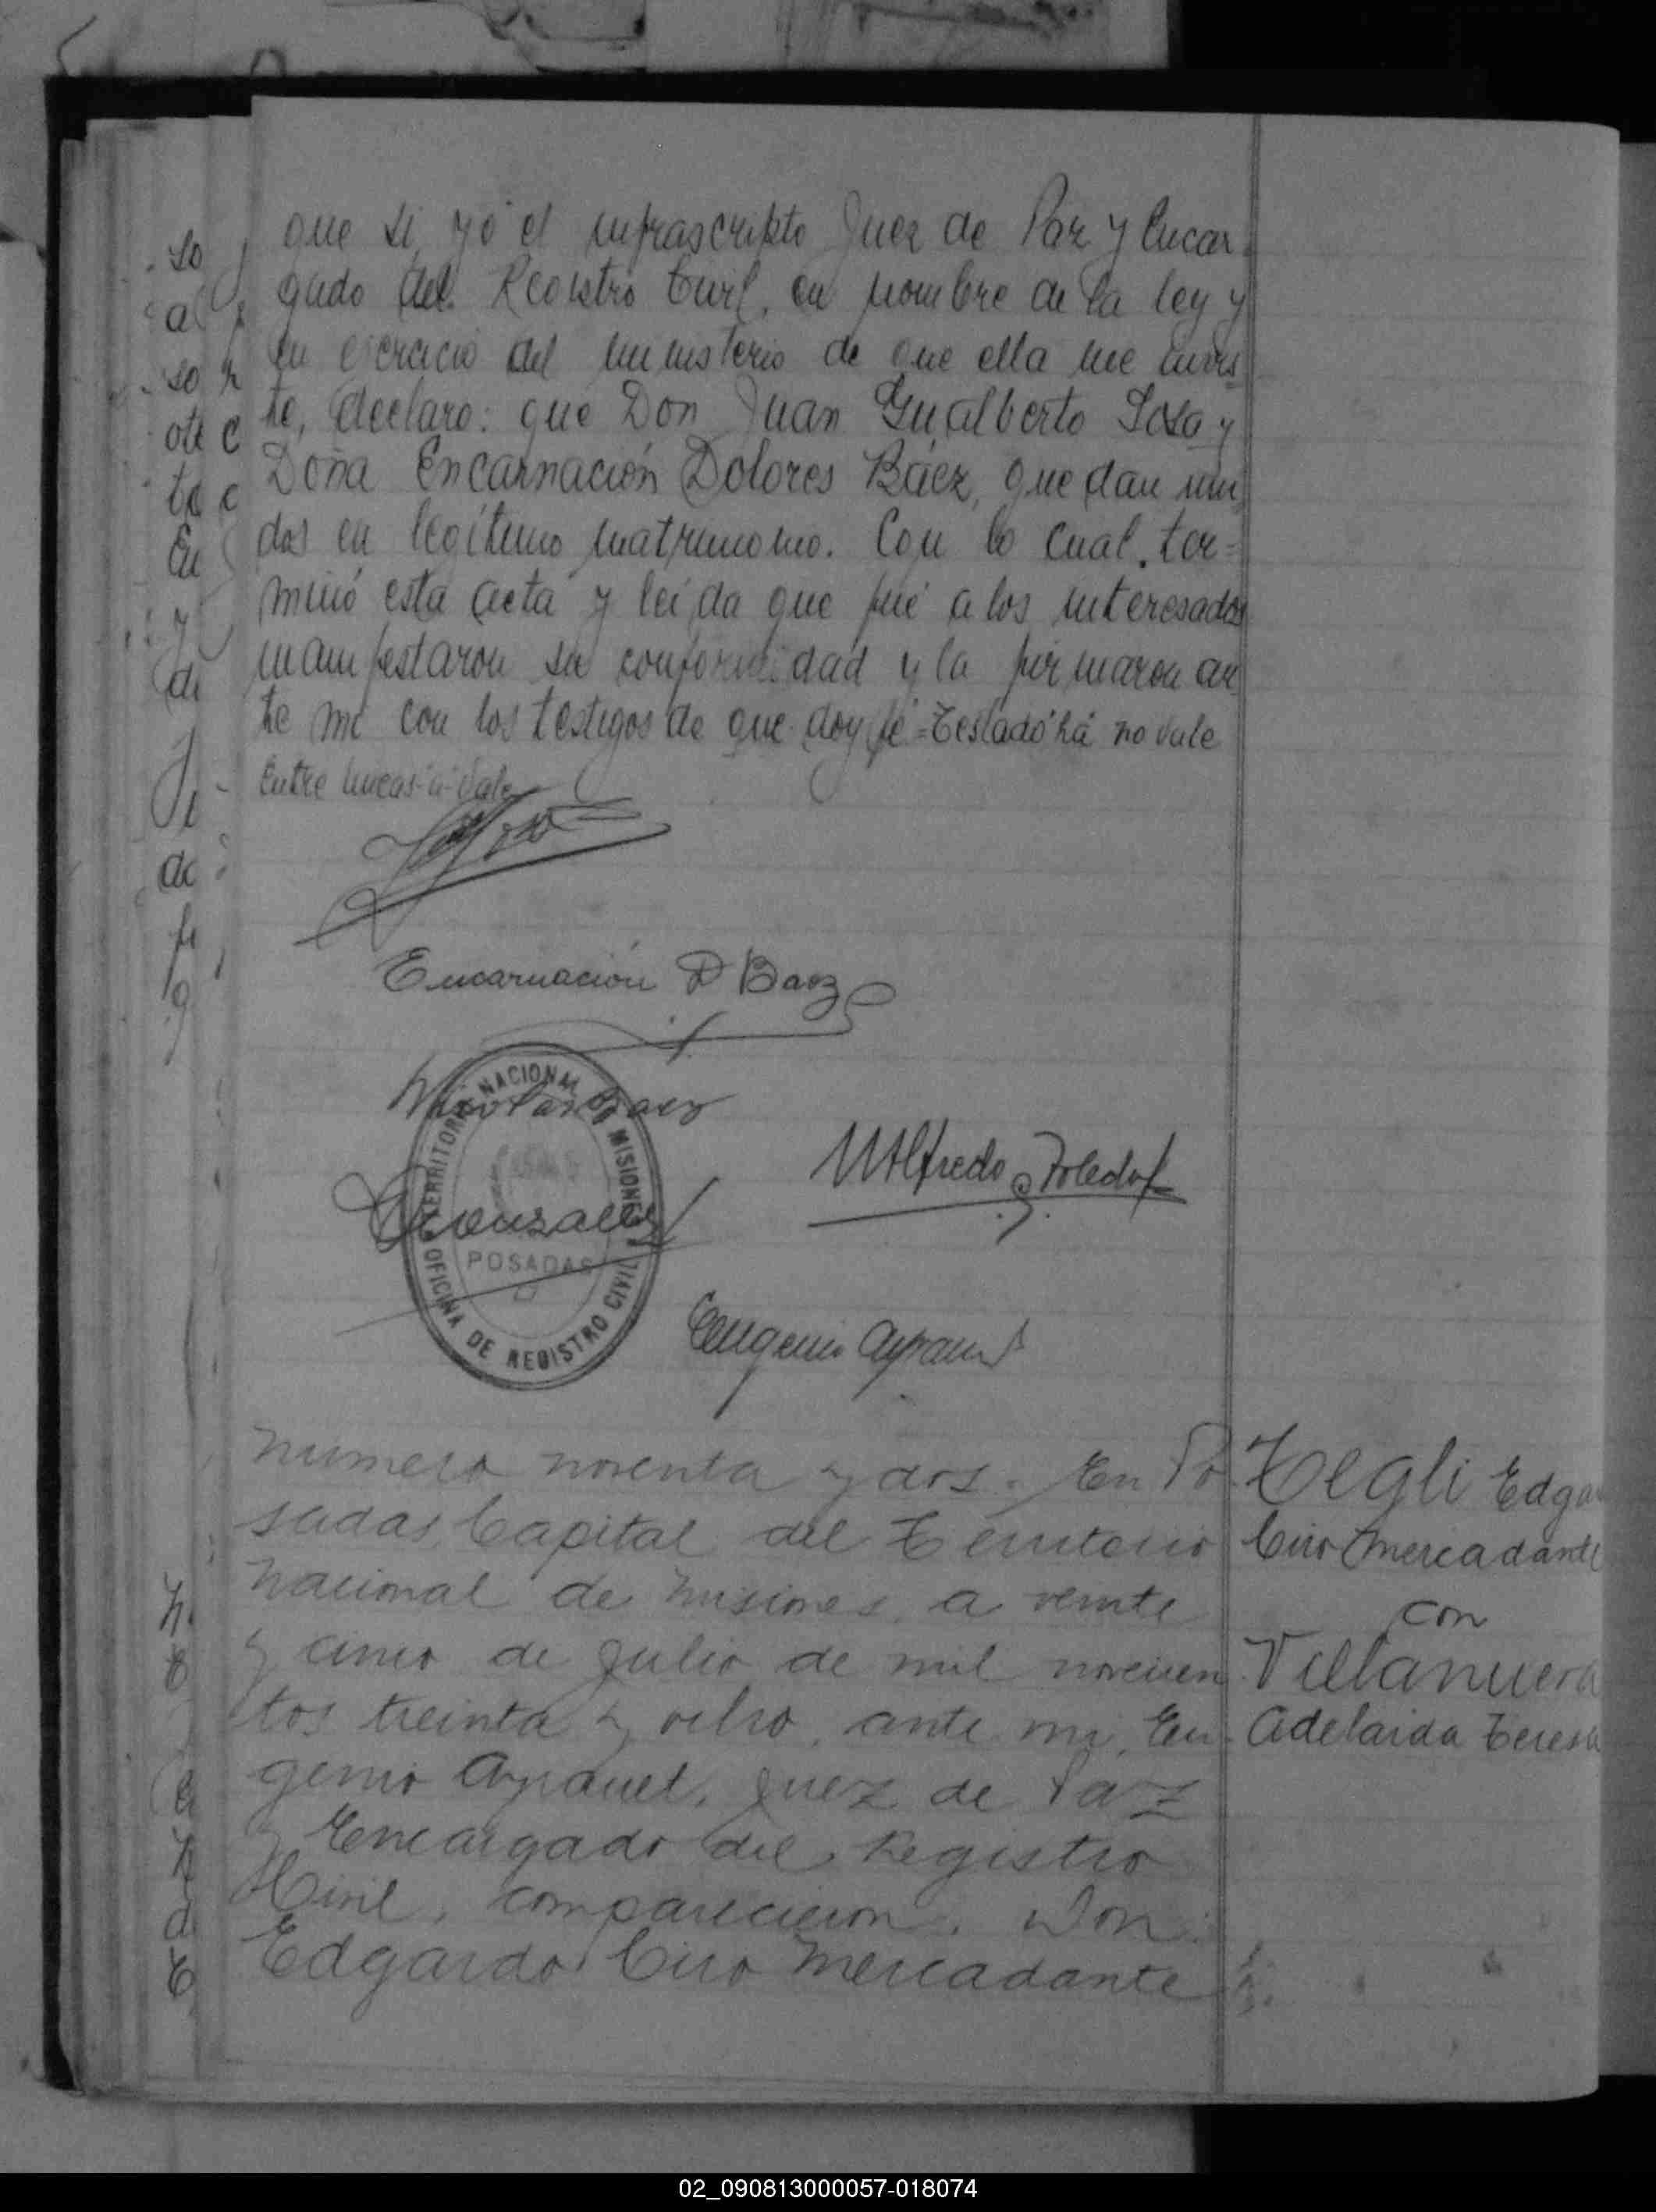 que sí, yó el infrascripto Juez de Paz y Encar-
gado del Registro Civil, en nombre de la ley y
en ejercicio del ministerio de que ella me invis-
te, declaro: que Don Juan Gualberto Sosa y
Doña Encarnación Dolores Báez, quedan uni-
dos en legítimo matrimonio. Con lo cual, ter=
minó esta acta y leída que fué a los interesados
manifestaron su conformidad y la firmaron an
te mí con los testigos de que doy fé=Testado há no vale
Entre lineas-a-Vale
Encarnación D Baez
Nicolas Baez
Wilfredo Toledo
Gonzalez
TERRITORIO NACIONAL DE MISIONES
POSADAS
OFICINA DE REGISTRO CIVIL
Eugenio Ayrault
Número noventa y dos. En Po
sadas, Capital del Territorio
Nacional de Misiones, a veinte
y cinco de Julio de mil novecien
tos treinta y ocho, ante mi, Eu-
genio Ayrault, Juez de Paz
y Encargado del Registro
Civil, comparecieron, Don
Edgardo Ciro Mercadante
Tegli Edgar
Ciro Mercadante
con
Villanueva
Adelaida Teresa
02_090813000057-018074